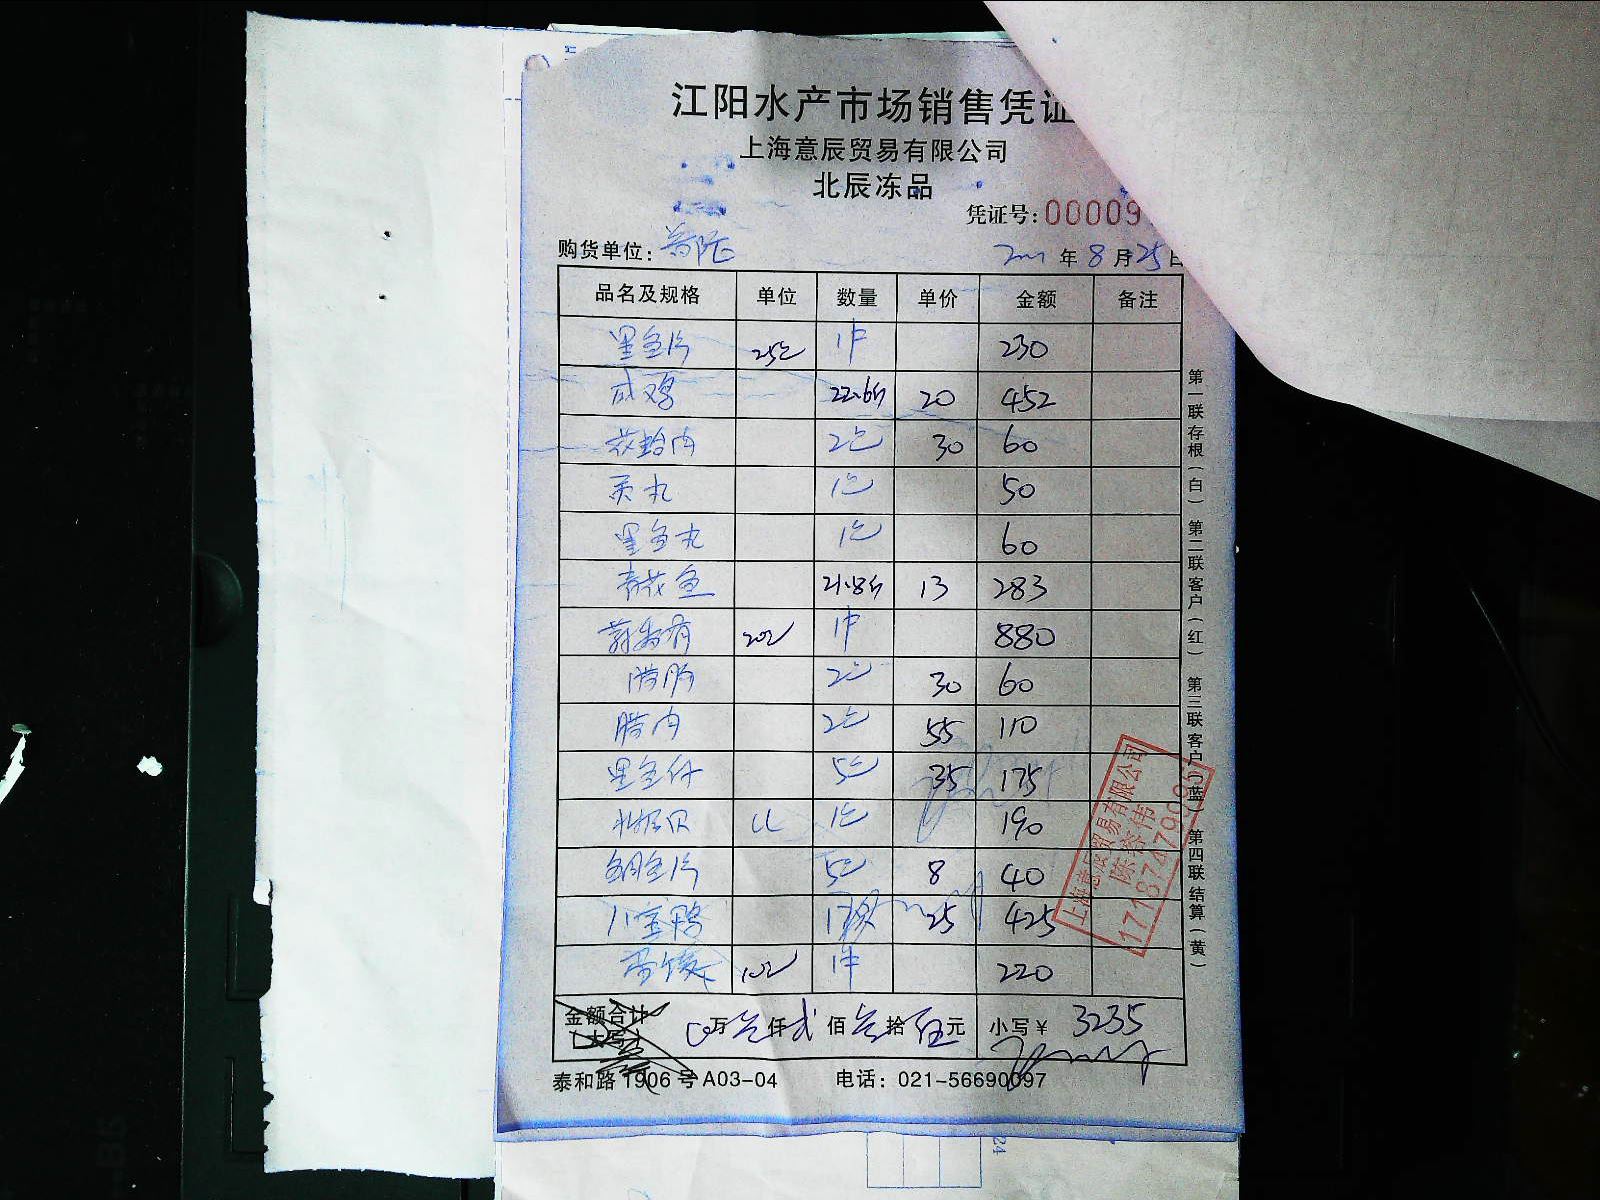 江阳水产市场销售凭证
上海意辰贸易有限公司
北辰冻品
凭证号:00009
购货单位: 年8月25日
品名及规格 单位 数量 单价 金额 备注
黑鱼片 25包 1件 230
咸鸡 22.6斤 20 452
花蛤肉 2包 30 60
贡丸 1包 50
黑鱼丸 1包 60
青花鱼 21.8斤 13 283
1件 880
腊肠 2包 30 60
腊肉 2包 55 110
5包 35 175
北极贝 1包 190
鲷鱼片 5包 8 40
八宝鸭 17 25 425
1件 220
金额合计
(大写) 万叁仟贰佰叁拾伍元 小写¥ 3235
泰和路1906号A03-04 电话: 021-56690097
第一联存根(白) 第二联客户(红) 第三联客户(蓝) 第四联结算(黄)
上海意辰贸易有限公司